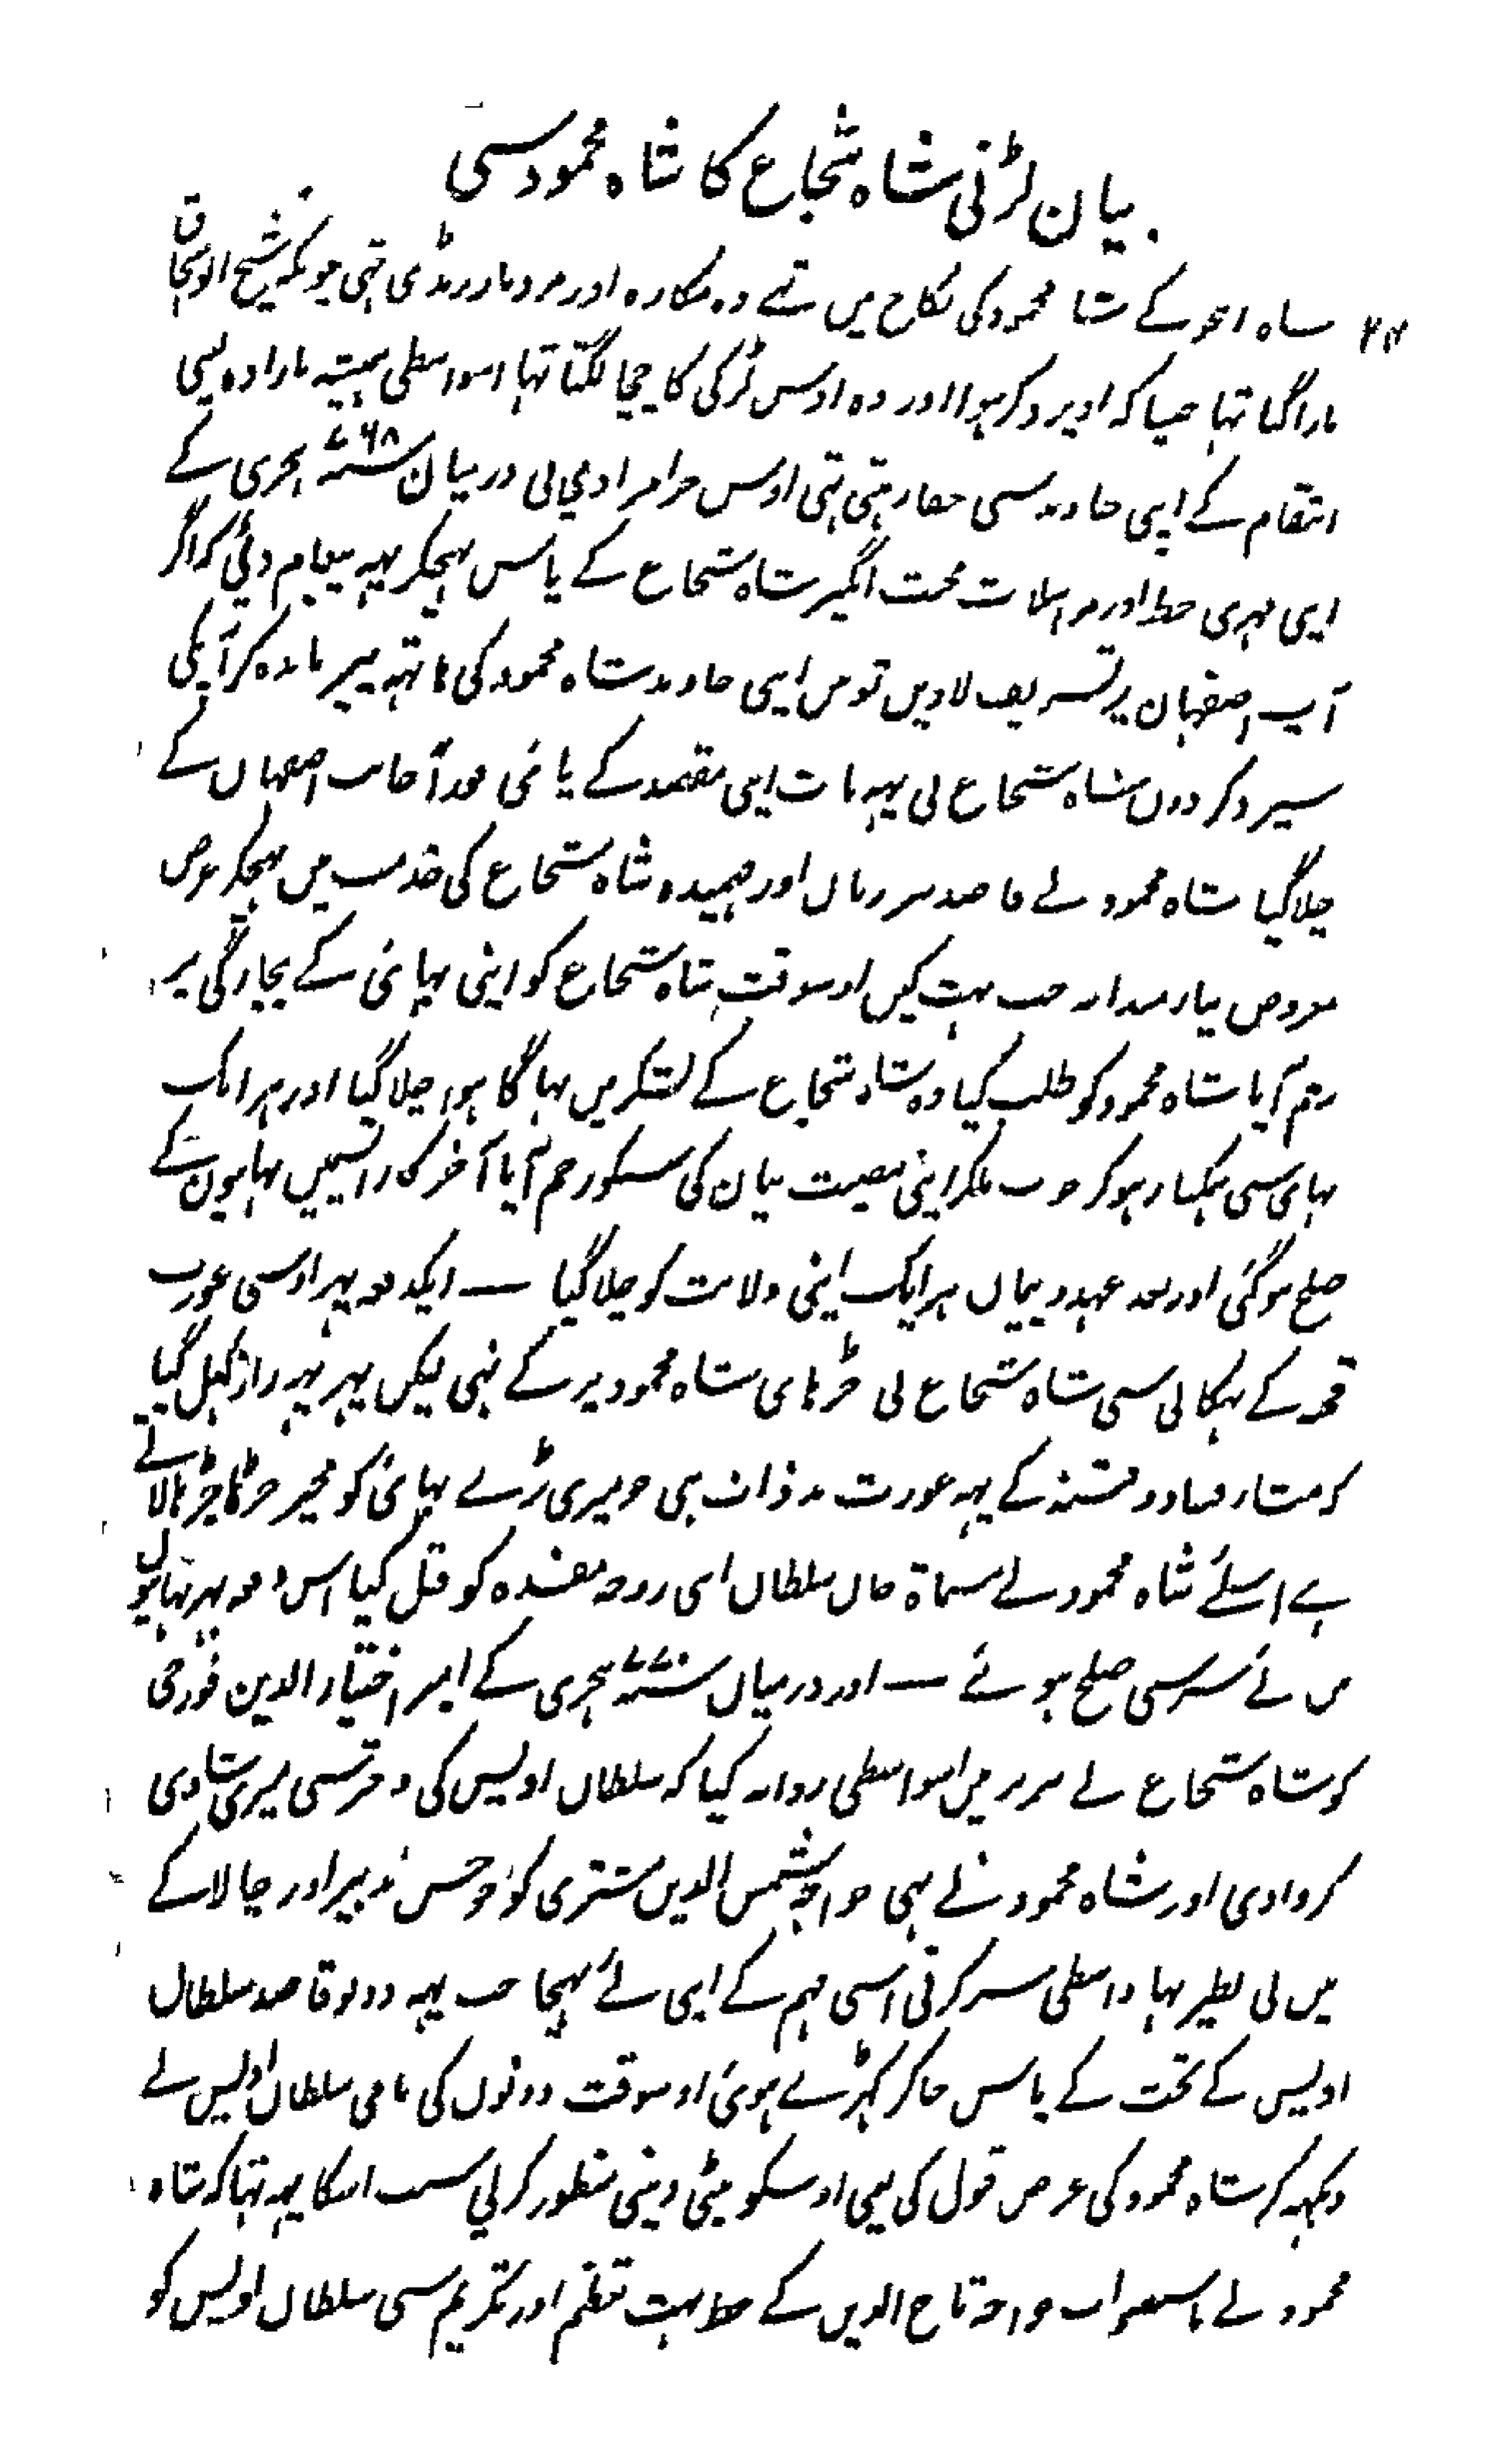 بیان لڑنی شاہ شجاع کا شاہ محمود سی
شاہ انجو کے شاہ محمود کی نکاح میں تہے وہ مکارہ اور مرد مار رنڈی تہی چونکہ شیخ ابو اسحاق
مارا گیا تہا جیسا کہ اوپر ذکر ہوا اور وہ اوس لڑکی کا چچا لگتا تہا اسواسطی ہمیشہ بارادہ لینی
انتقام کے اپنی خاوند سی خفا رہتی تہی اوس حرامزادی نی درمیان ۷۶۸؁ ہجری کے
اپنی مہری خط اور مراسلات محبت انگیز شاہ شجاع کے پاس بہیجکر یہہ پیغام دیئی کہ اگر
آپ اصفہان پر تشریف لاویں تو میں اپنی خاوند شاہ محمود کی ہاتہہ پیر باندہ کر آپکی
سپرد کر دوں شاہ شجاع نی یہہ بات اپنی مقصد کے پائی فوراً جانب اصفہان کے
چلا گیا شاہ محمود نے قاصد اور فہمیدہ شاہ شجاع کی خدمت میں بہیجکر عرض
معروض نیازمندانہ جب بہت کیں اوسوقت شاہ شجاع کو اپنی بہائی کے بیچارگی پر
رحم آیا شاہ محمود کو طلب کیا وہ شاہ شجاع کے لشکر میں بہاگا ہوا چلا گیا اور ہر ایک
بہائی سی ہمکنار ہو کر خوب ملکر اپنی مصیبت بیان کی سبکو رحم آیا آخر کار آپسمیں بہایوں کے
صلح ہوگئی اور بعد عہد و پیمان ہر ایک اپنی ولایت کو چلا گیا — ایکدفعہ پہر اوسی عورت
قحبہ کے بہکانی سی شاہ شجاع نی چڑہائی شاہ محمود پر کے تہی لیکن پہر یہہ راز کہل گیا
کہ منشار فساد و فتنہ کے یہہ عورت بدذات ہی جو میری بڑے بہائی کو مجہپر چڑہا چڑہا لاتے
ہے اسلئے شاہ محمود نے مسماۃ خان سلطان اپنی زوجہ مفسدہ کو قتل کیا اس دفعہ پہر بہائیوں
میں نئے سرسی صلح ہوئے — اور درمیان ۷۷۰؁ ہجری کے امیر اختیار الدین قورچی
کو شاہ شجاع نے تبریز میں اسواسطی روانہ کیا کہ سلطان اویس کی دختر سی میری شادی
کروادی اور شاہ محمود نے بہی خواجہ شمس الدین ستری کو جو حسن تدبیر اور چالاکے
میں بی نظیر تہا واسطی سر کرنی اسی مہم کے اپنی لئے بہیجا جب یہہ دونو قاصد سلطان
اویس کے تخت کے پاس جاکر کہڑے ہوئ اوسوقت دونوں کی سلطان اویس نے
دیکہہ کر شاہ محمود کی عرض قبول کی یعنی اوسکو بیٹی دینی منظور کرلی سبب اسکا یہہ تہا کہ شاہ
محمود نے باستصواب خواجہ تاج الدین کے خط بہت تعظیم اور تکریم سی سلطان اویس کو